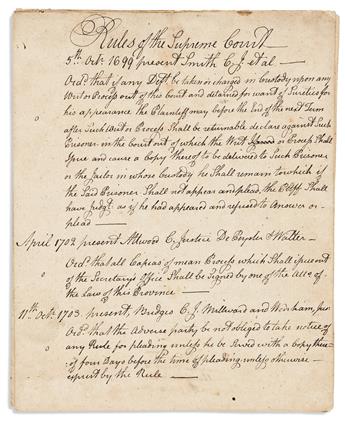 Rules of the Supreme Court
5th Octr 1699 present Smith C. J. & al—
Ord. that if any Deft. be taken or charged in Custody upon any
Writ or Process out of this Court and detained for want of Sureties for
his appearance the Plaintiff may before the End of the next Term
after Such Writ or Process Shall be returnable declare against Such
Prisoner in the Court out of which the Writ or Process Shall
Issue and cause a Copy thereof to be delivered to Such Prisoner
or the Jailor in whose Custody he Shall remain to which if
the Said Prisoner Shall not appear and plead, the Shall
have Judgt. as if he had appeared and refused to Answer or
plead —
April 1702 present Attwood C. Justice De Peyster & Walter —
Ord. that all Copies of mean Process which Shall issue out
of the Secretary's Office Shall be Signed by one of the of
the Law of this Province —
11th Octr. 1703. present, Bridges C. J. Millward and Wenham, Jus.
Ord. that the Adverse party be not obliged to take notice of
any Rule for pleading unless he be Served with a Copy there
of four Days before the time of pleading unless otherwise
exprest by the Rule —